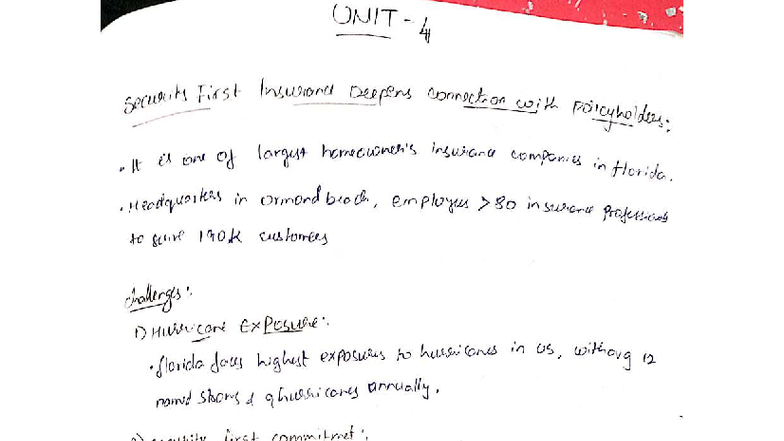 UNIT - 4
Security First Insurance Deepens connection with Policyholders:
. It is one of largest homeowner's insurance companies in florida.
. Headquarters in ormond beach, employees >80 insurance professionals
to serve 190K customers
challenges:
1) Hurricane Exposure:
. florida faces highest exposures to hurricanes in US, with avg 12
named storms & 9 hurricanes annually.
first commitmet: